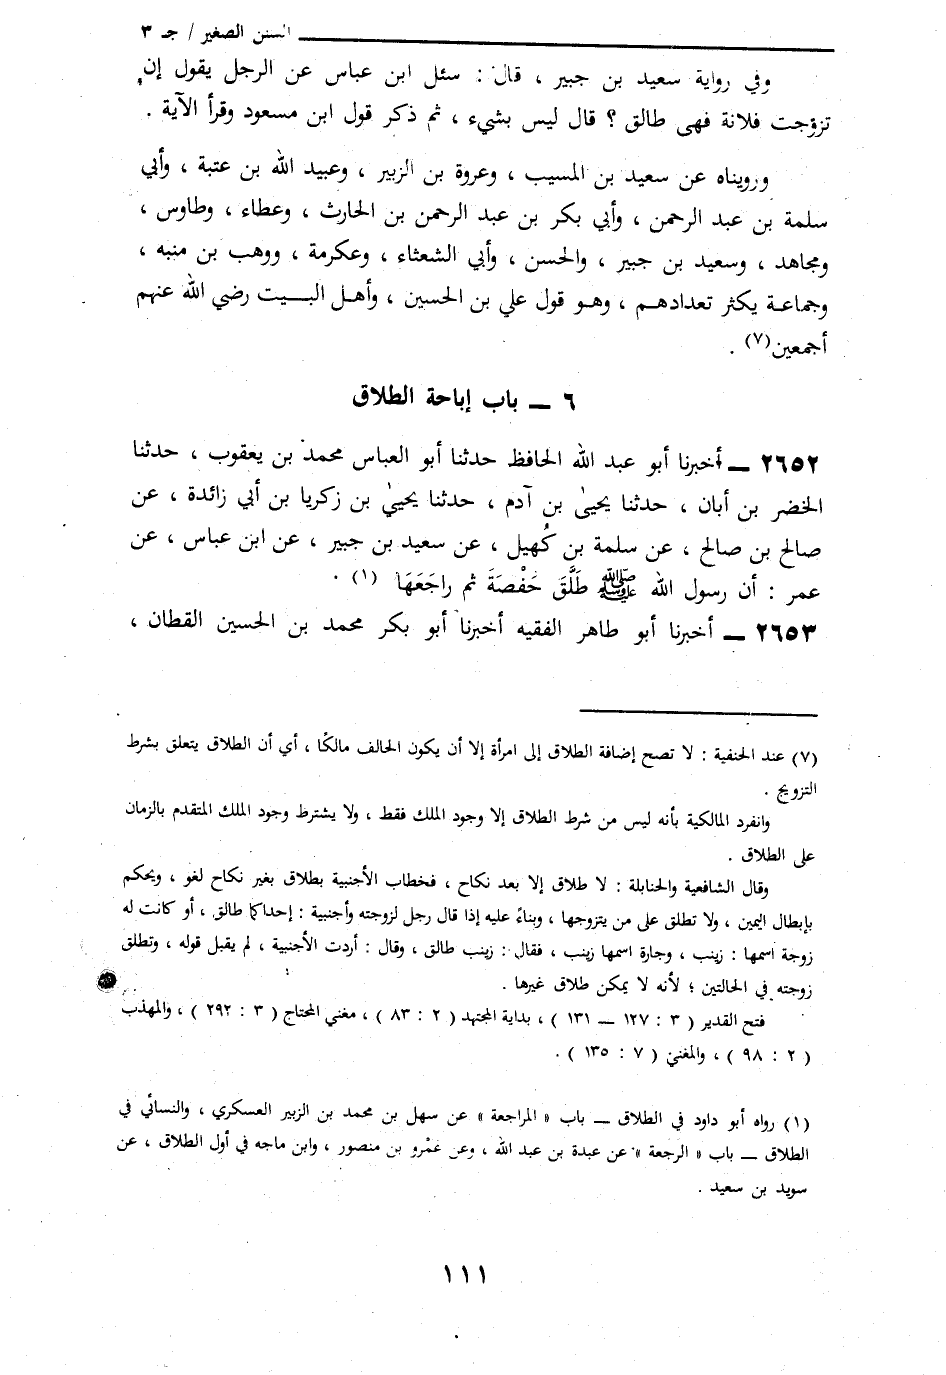 السنن الصغير / جـ ٣
وفي رواية سعيد بن جبير ، قال : سئل ابن عباس عن الرجل يقول إن
تزوّجت فلانة فهى طالق ؟ قال ليس بشيء ، ثم ذكر قول ابن مسعود وقرأ الآية .
ورويناه عن سعيد بن المسيب ، وعروة بن الزبير ، وعبيد الله بن عتبة ، وأبي
سلمة بن عبد الرحمن ، وأبي بكر بن عبد الرحمن بن الحارث ، وعطاء ، وطاوس ،
ومجاهد ، وسعيد بن جبير ، والحسن ، وأبي الشعثاء ، وعكرمة ، ووهب بن منبه ،
وجماعة يكثر تعدادهم ، وهو قول علي بن الحسين ، وأهل البيت رضي الله عنهم
أجمعين(٧) .
٦ ــ باب إباحة الطلاق
٢٦٥٢ ــ أخبرنا أبو عبد الله الحافظ حدثنا أبو العباس محمد بن يعقوب ، حدثنا
الخضر بن أبان ، حدثنا يحيىٰ بن آدم ، حدثنا يحيىٰ بن زكريا بن أبي زائدة ، عن
صالح بن صالح ، عن سلمة بن كُهيل ، عن سعيد بن جبير ، عن ابن عباس ، عن
عمر : أن رسول الله ﷺ طَلَّقَ حَفْصَةَ ثم راجَعَهَا (١) .
٢٦٥٣ ــ أخبرنا أبو طاهر الفقيه أخبرنا أبو بكر محمد بن الحسين القطان ،
(٧) عند الحنفية : لا تصح إضافة الطلاق إلى امرأة إلا أن يكون الحالف مالكًا ، أي أن الطلاق يتعلق بشرط
التزويج .
وانفرد المالكية بأنه ليس من شرط الطلاق إلا وجود الملك فقط ، ولا يشترط وجود الملك المتقدم بالزمان
على الطلاق .
وقال الشافعية والحنابلة : لا طلاق إلا بعد نكاح ، فخطاب الأجنبية بطلاق بغير نكاح لغو ، ويحكم
بإبطال اليمين ، ولا تطلق على من يتزوجها ، وبناءً عليه إذا قال رجل لزوجته وأجنبية : إحداكما طالق ، أو كانت له
زوجة اسمها : زينب ، وجارة اسمها زينب ، فقال : زينب طالق ، وقال : أردت الأجنبية ، لم يقبل قوله ، وتطلق
زوجته في الحالتين ؛ لأنه لا يمكن طلاق غيرها .
فتح القدير ( ٣ : ١٢٧ ــ ١٣١ ) ، بداية المجتهد ( ٢ : ٨٣ ) ، مغني المحتاج ( ٣ : ٢٩٢ ) ، والمهذب
( ٢ : ٩٨ ) ، والمغني ( ٧ : ١٣٥ ) .
(١) رواه أبو داود في الطلاق ــ باب « المراجعة » عن سهل بن محمد بن الزبير العسكري ، والنسائي في
الطلاق ــ باب « الرجعة » عن عبدة بن عبد الله ، وعن عَمْرو بن منصور ، وابن ماجه في أول الطلاق ، عن
سويد بن سعيد .
١١١